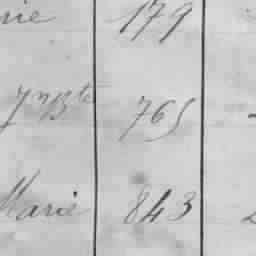 rie 179
Jn Bte 765
Marie 843